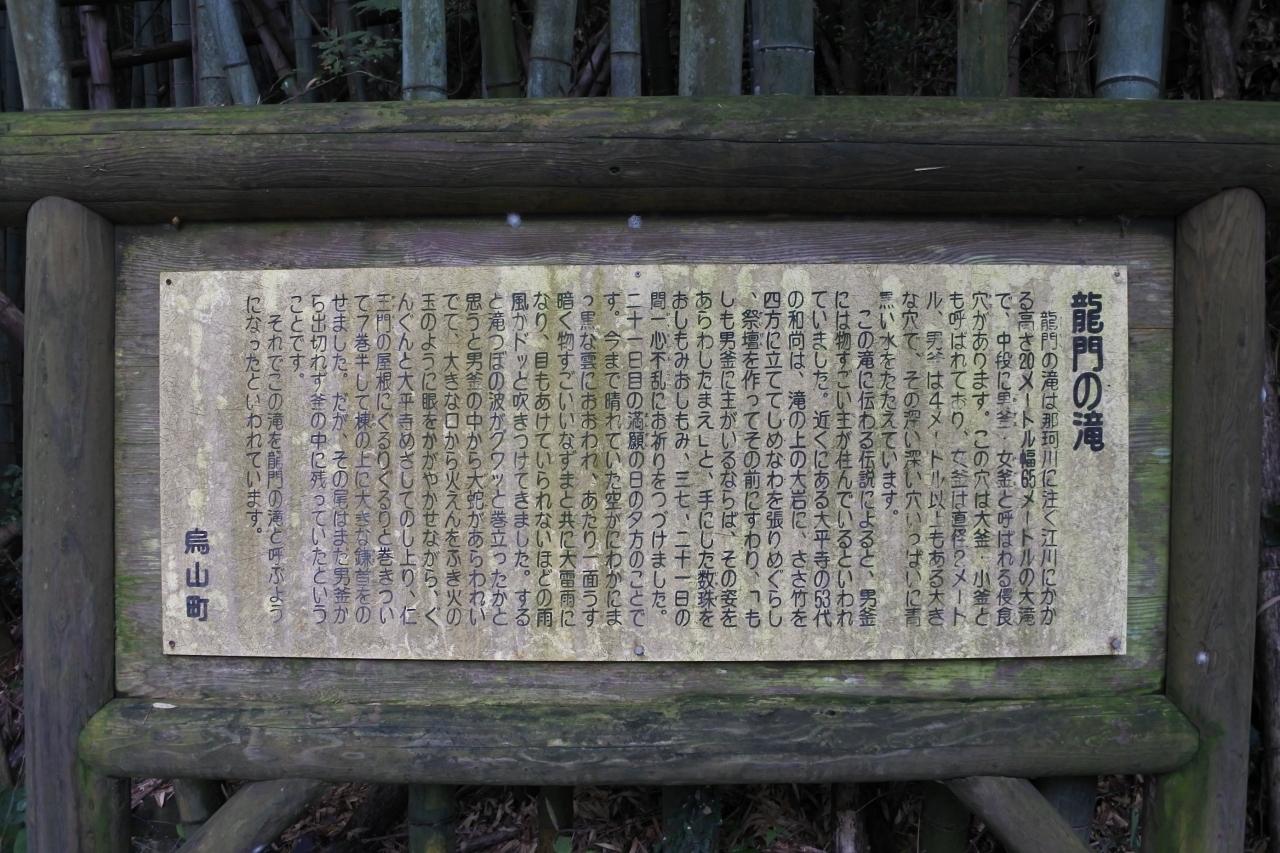 龍門の滝
龍門の滝は那珂川に注ぐ江川にかか
る高さ20メートル幅65メートルの大滝
で、中段に男釜・女釜と呼ばれる侵食
穴があります。この穴は大釜・小釜と
も呼ばれており、女釜は直径2メート
ル、男釜は4メートル以上もある大き
な穴で、その深い深い穴いっぱいに青
黒い水をたたえています。
この滝に伝わる伝説によると、男釜
には物すごい主が住んでいるといわれ
ていました。近くにある大平寺の53代
の和尚は、滝の上の大岩に、ささ竹を
四方に立ててしめなわを張りめぐらし
、祭壇を作ってその前にすわり、「も
しも男釜に主がいるならば、その姿を
あらわしたまえ」と、手にした数珠を
おしもみおしもみ、三七、二十一日の
間一心不乱にお祈りをつづけました。
二十一日目の満願の日の夕方のことで
す。今まで晴れていた空がにわかにま
っ黒な雲におおわれ、あたり一面うす
暗く物すごいいなずまと共に大雷雨に
なり、目もあけていられないほどの雨
風がドッと吹きつけてきました。する
と滝つぼの波がグワッと巻立ったかと
思うと男釜の中から大蛇があらわれい
でて、大きな口から火えんをふき火の
玉のように眼をかがやかせながら、ぐ
んぐんと大平寺めざしてのし上り、仁
王門の屋根にくるりくるりと巻きつい
て7巻半して棟の上に大きな鎌首をの
せました。だが、その尾はまだ男釜か
ら出切れず釜の中に残っていたという
ことです。
それでこの滝を龍門の滝と呼ぶよう
になったといわれています。
烏山町